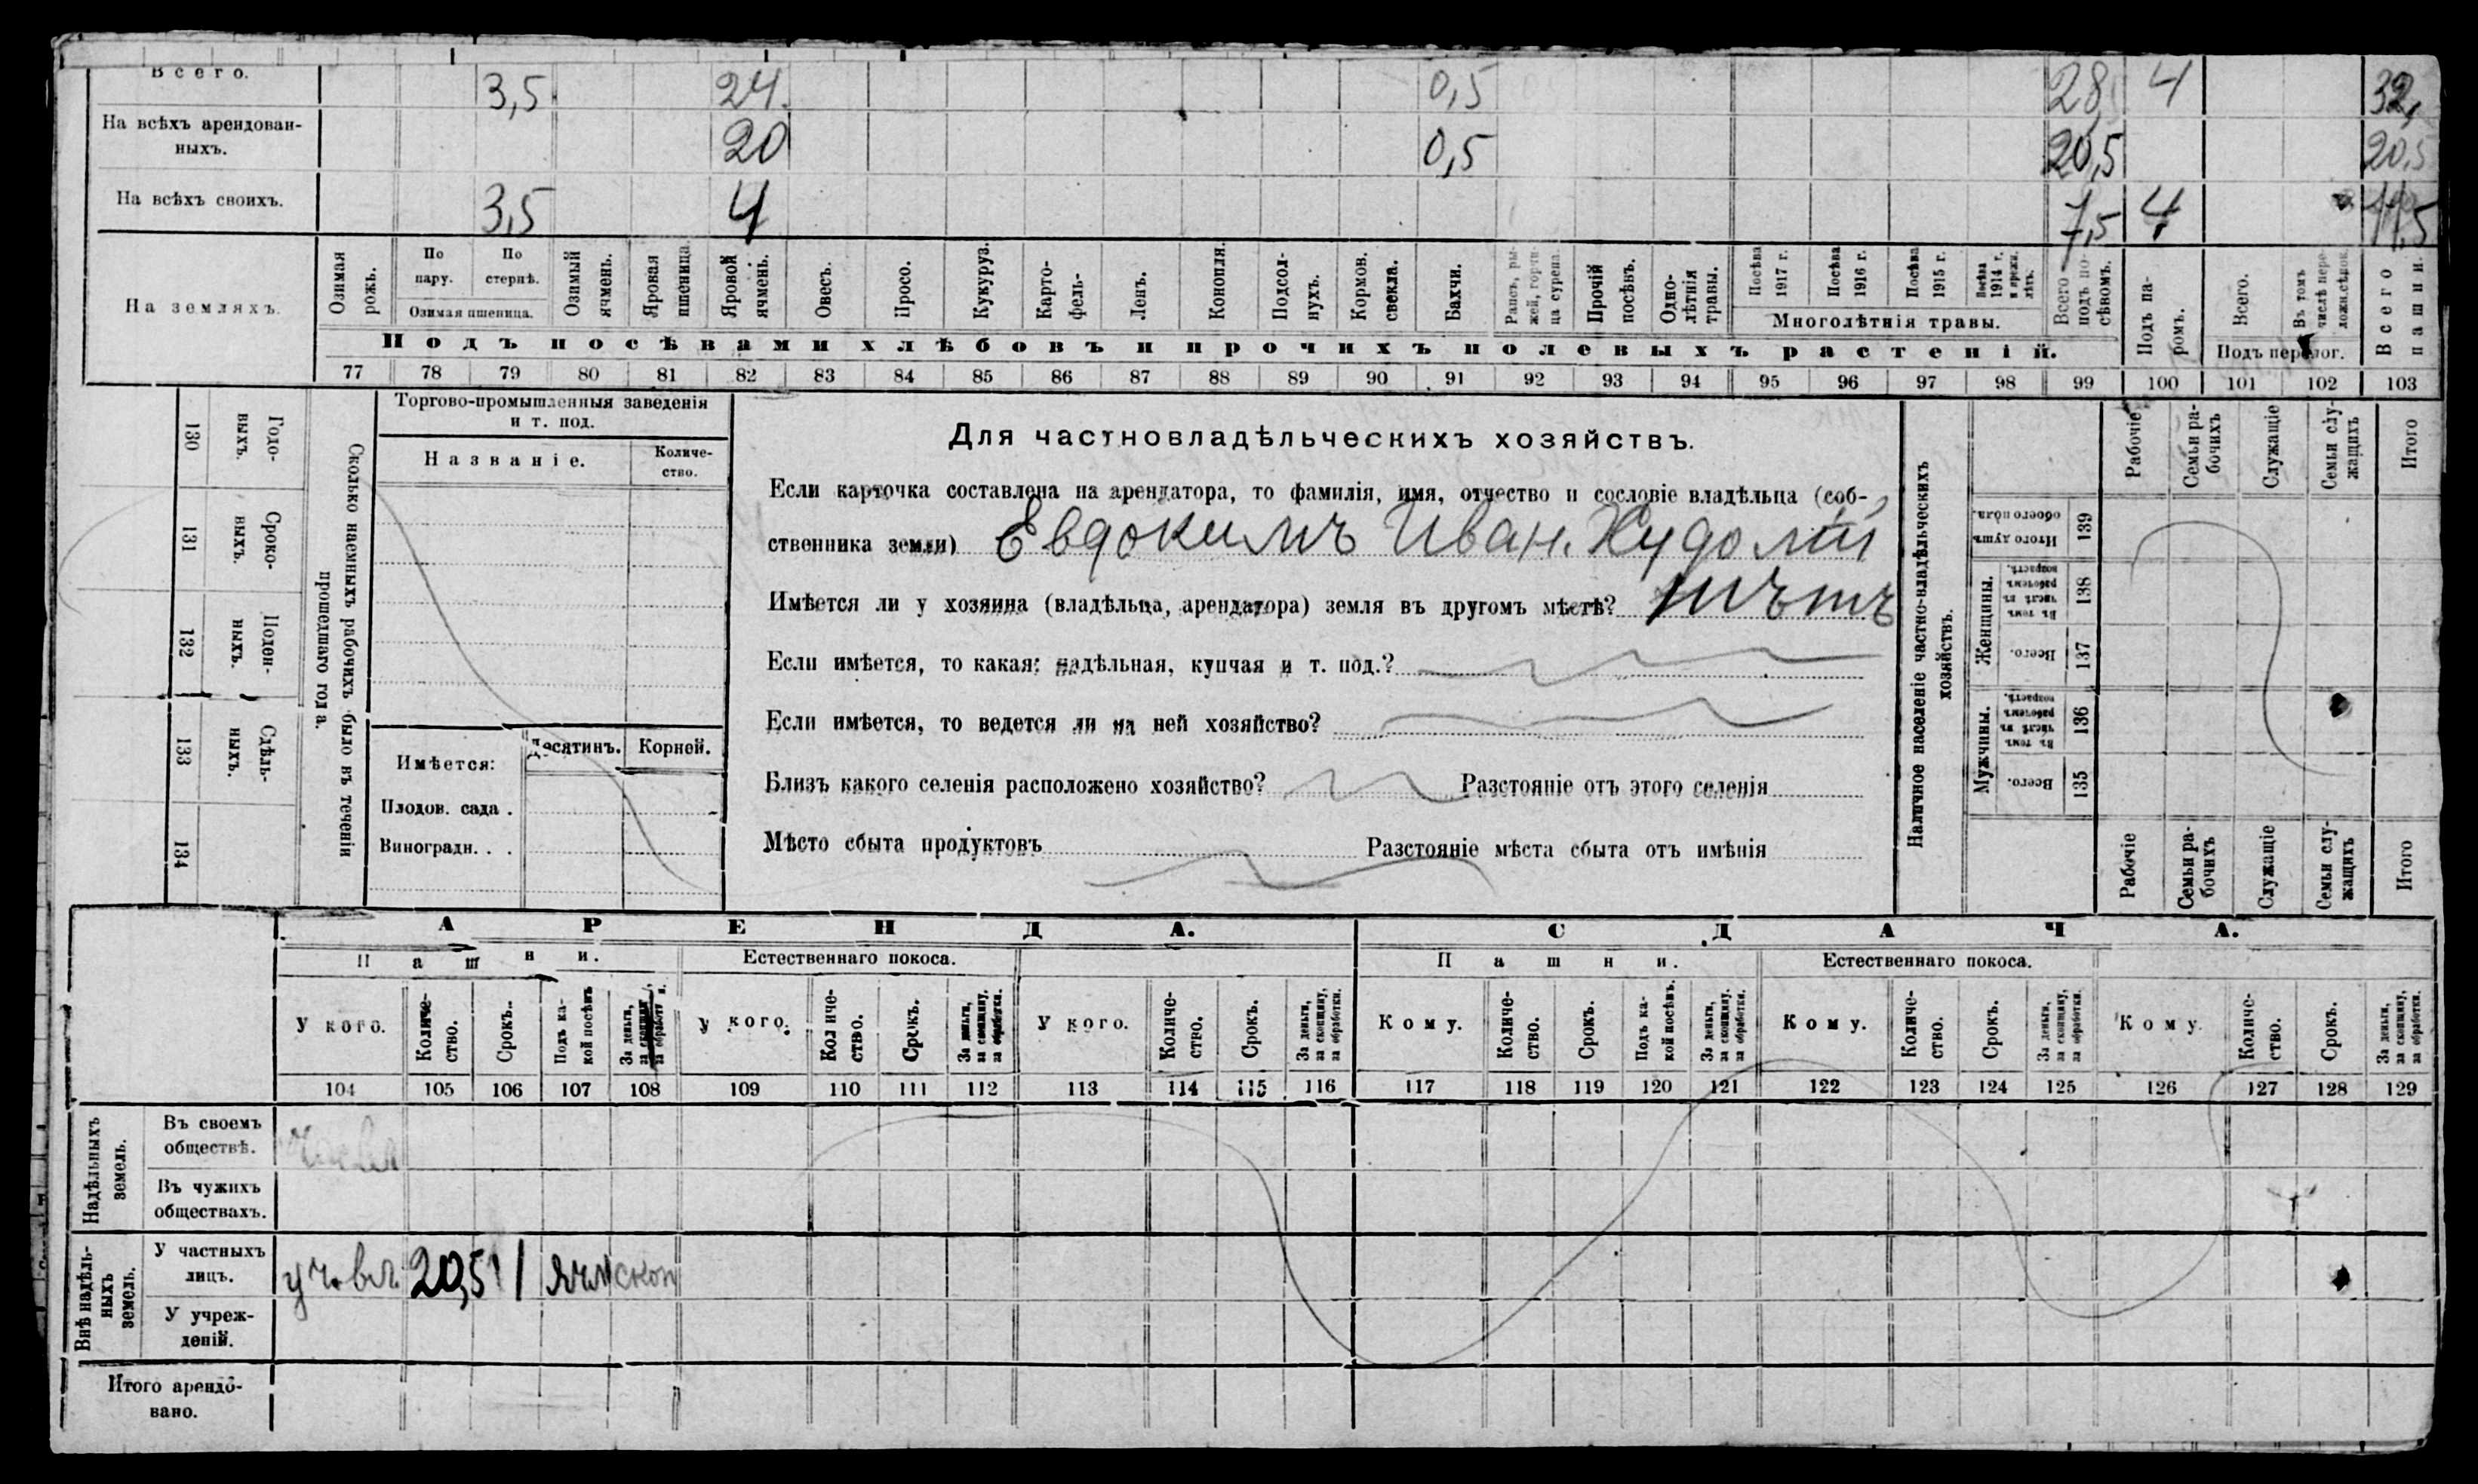 Всего. 3,5 24. 0,5 28, 4 32,
На всѣхъ арендован-
ныхъ. 20 0,5 20,5 20,5
На всѣхъ своихъ. 3,5 4 7,5 4 11,5
На земляхъ.
Озимая рожь.
По пару.
По стернѣ.
Озимая пшеница.
Озимый ячмень.
Яровая пшеница.
Яровой ячмень.
Овесъ.
Просо.
Кукуруз.
Карто-
фель-
Ленъ.
Конопля.
Подсол-
нухъ.
Кормов.
свекла.
Бахчи.
Рапсъ, ры-
жей, горчи-
ца сурепа.
Прочій
посѣвъ.
Одно-
лѣтнія
травы.
Посѣва
1917 г.
Посѣва
1916 г.
Посѣва
1915 г.
Посѣва
1914 г.
и прежн.
лѣтъ.
Многолѣтнія травы.
Всего
подъ по-
сѣвомъ.
Подъ па-
ромъ.
Всего.
Въ томъ
числѣ пере-
Подъ перелог.
Всего
пашни.
Подъ посѣвами хлѣбовъ и прочихъ полевыхъ растеній.
77 78 79 80 81 82 83 84 85 86 87 88 89 90 91 92 93 94 95 96 97 98 99 100 101 102 103
Сколько наемныхъ рабочихъ было въ теченіи
прошедшаго года.
Годо-
выхъ.
130
Сроко-
выхъ.
131
Поден-
ныхъ.
132
Сдѣль-
ныхъ.
133
134
Торгово-промышленныя заведенія
и т. под.
Названіе.
Количе-
ство.
Имѣется: Десятинъ. Корней.
Плодов. сада .
Виноградн. . .
Для частновладѣльческихъ хозяйствъ.
Если карточка составлена на арендатора, то фамилія, имя, отчество и сословіе владѣльца (соб-
ственника земли) Евдокимъ Иван.
Имѣется ли у хозяина (владѣльца, арендатора) земля въ другомъ мѣстѣ? нѣтъ
Если имѣется, то какая: надѣльная, купчая и т. под.?
Если имѣется, то ведется ли на ней хозяйство?
Близъ какого селенія расположено хозяйство? Разстояніе отъ этого селенія
Мѣсто сбыта продуктовъ Разстояніе мѣста сбыта отъ имѣнія
Наличное населеніе частно-владѣльческихъ
хозяйствъ.
Рабочіе
Семьи ра-
бочихъ
Служащіе
Семьи слу-
жащихъ
Итого
Итого душъ
обоего пола.
139
Женщины.
Въ томъ
числѣ въ
рабочемъ
возрастѣ.
138
Всего.
137
Мужчины.
Въ томъ
числѣ въ
рабочемъ
возрастѣ.
136
Всего.
135
Рабочіе
Семьи ра-
бочихъ
Служащіе
Семьи слу-
жащихъ
Итого
АРЕНДА. СДАЧА.
Пашни. Естественнаго покоса. Пашни. Естественнаго покоса.
У кого.
Количе-
ство.
Срокъ.
Подъ ка-
кой посѣвъ
За деньги,
за скопщину,
за обработк и.
У кого.
Количе-
ство.
Срокъ.
За деньги,
за скопщину,
за обработки.
У кого.
Количе-
ство.
Срокъ.
За деньги,
за скопщину,
за обработки.
Кому.
Количе-
ство.
Срокъ.
Подъ ка-
кой посѣвъ.
За деньги,
за скопщину.
за обработки.
Кому.
Количе-
ство.
Срокъ.
За деньги,
за скопщину,
за обработки.
Кому.
Количе-
ство.
Срокъ.
За деньги,
за скопщину,
за обработки.
104 105 106 107 108 109 110 111 112 113 114 115 116 117 118 119 120 121 122 123 124 125 126 127 128 129
Надѣльныхъ
земель.
Въ своемъ
обществѣ.
Въ чужихъ
обществахъ.
Внѣ надѣль-
ныхъ
земель.
У частныхъ
лицъ. у ч. вл. 20,5 1 ячм скоп
У учреж-
деній.
Итого арендо-
вано.